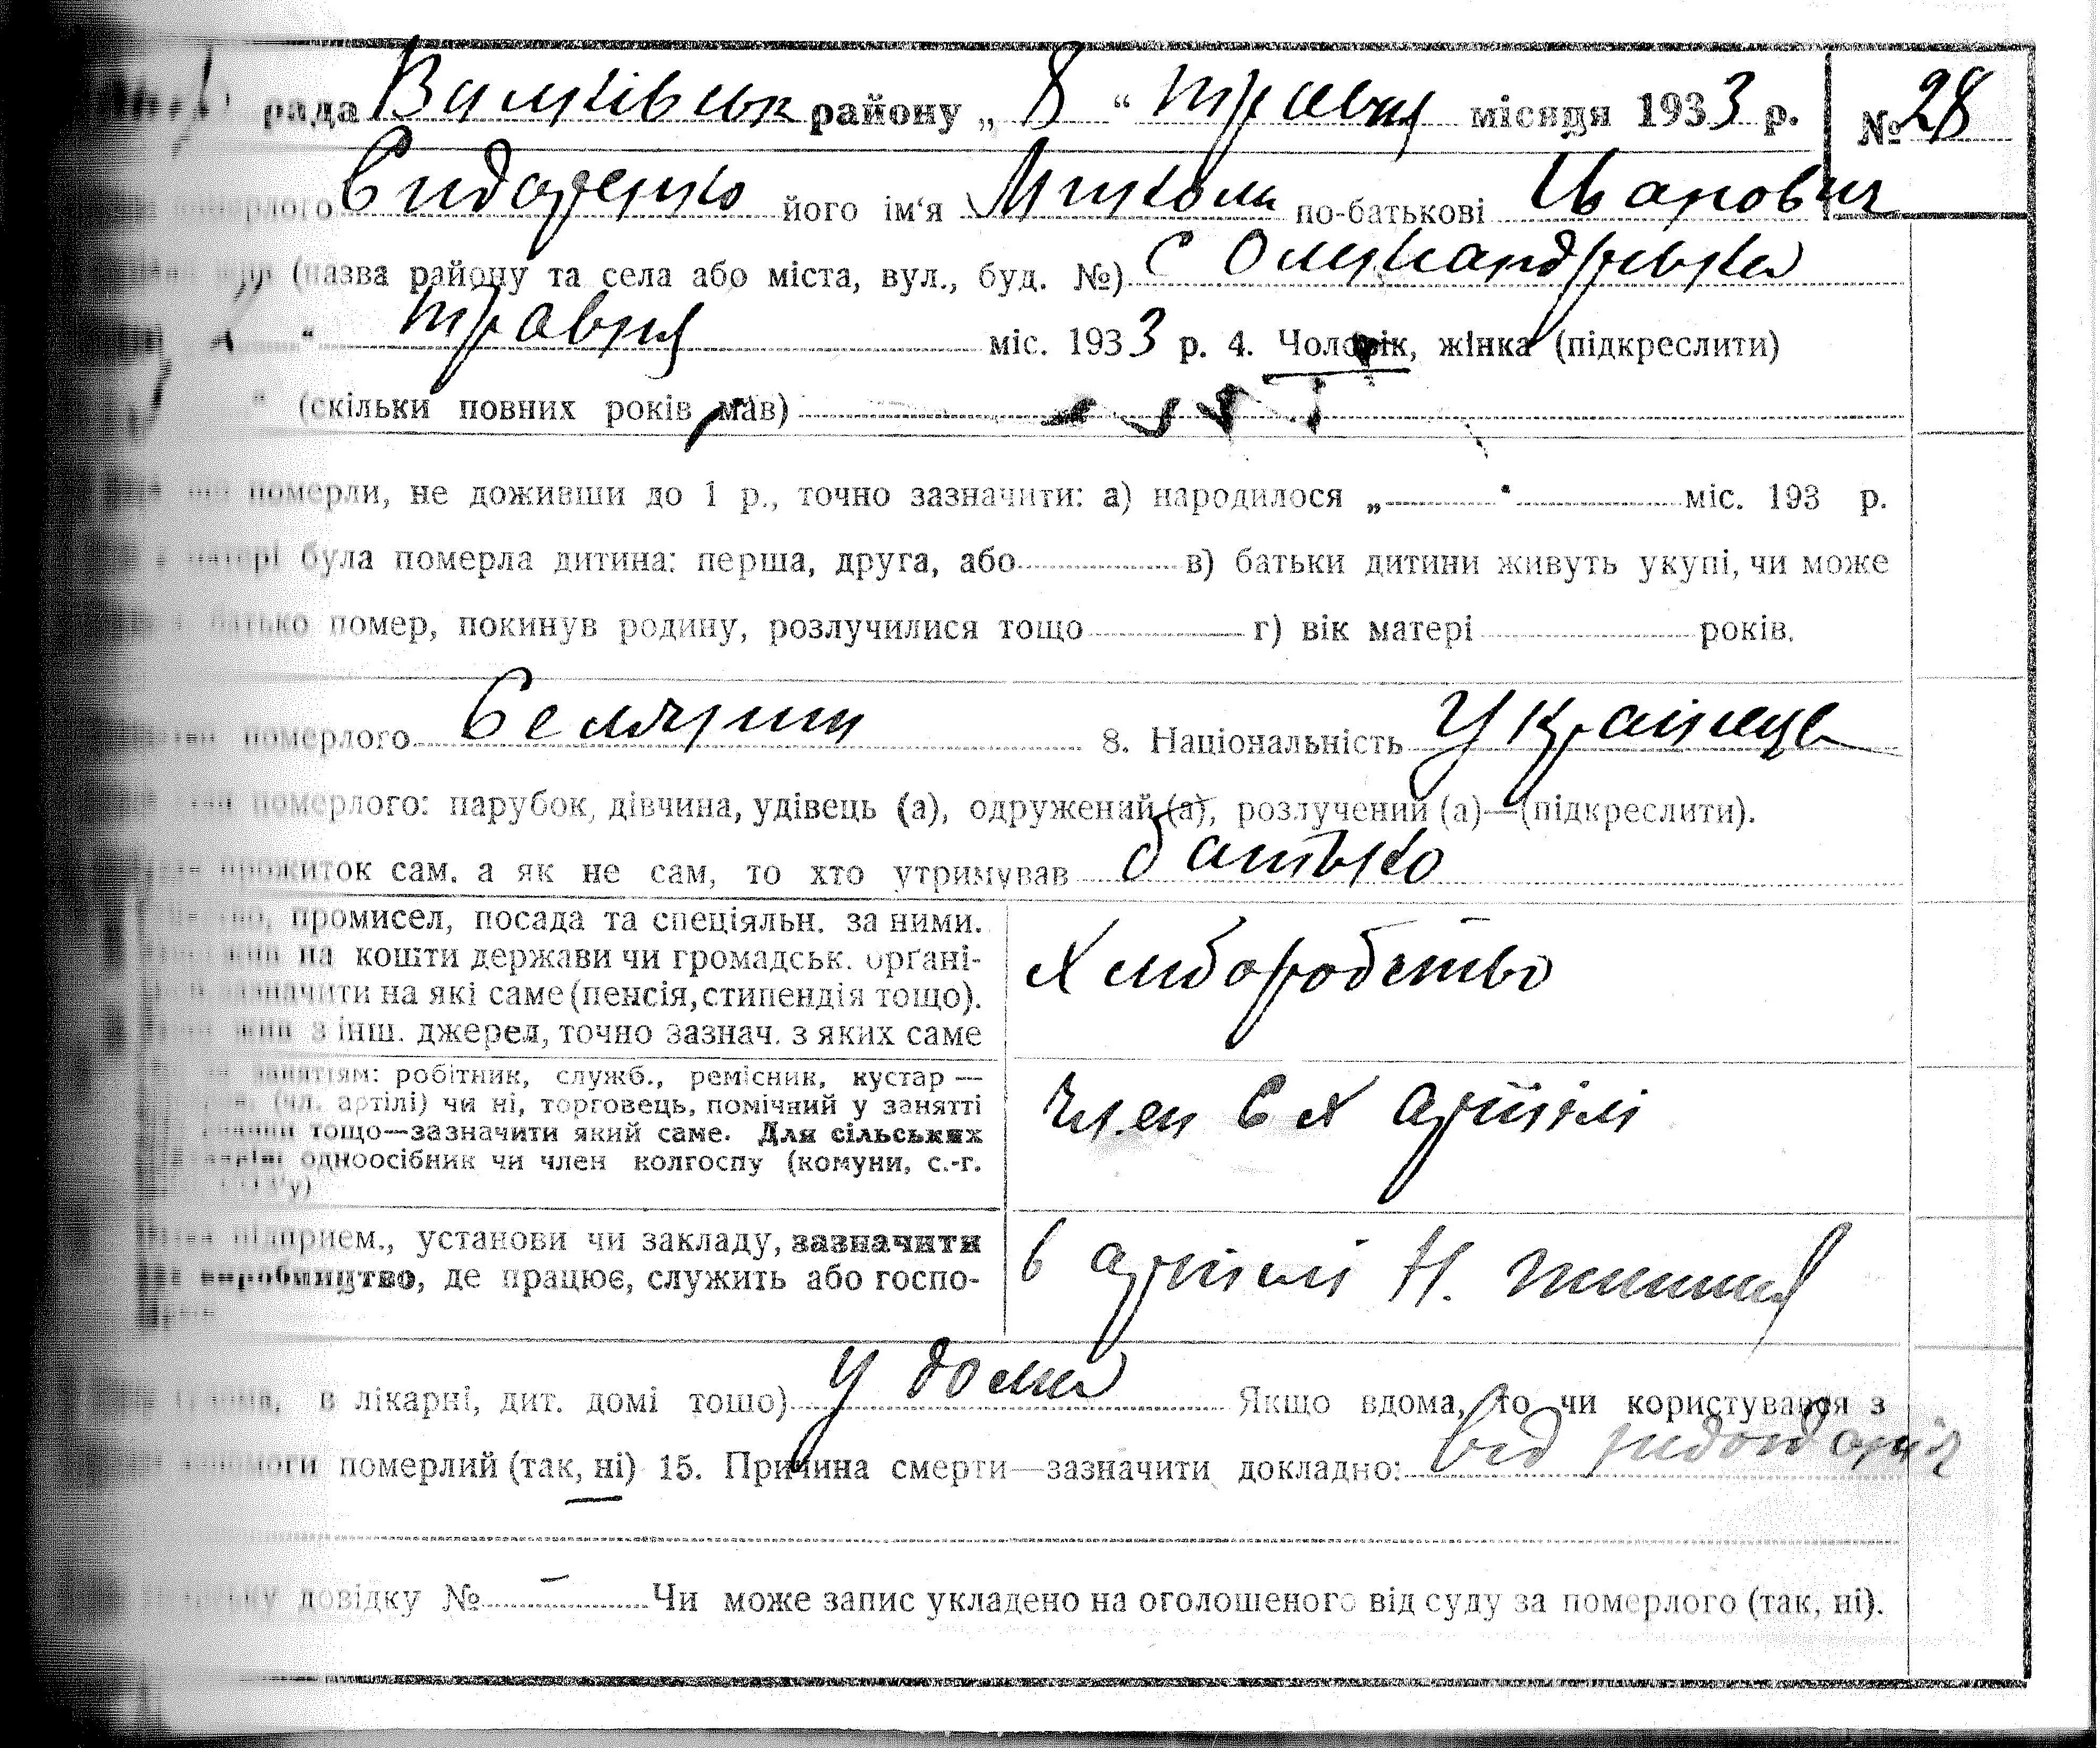 рада Валківськ району „ 8 “ травня місяця 1933 р. № 28
померлого Сидоренко його ім‘я Микола по-батькові Іванович
(назва району та села або міста, вул., буд. №) с Олександрівка
“ травня міс. 1933 р. 4. Чоловік, жінка (підкреслити)
“ (скільки повних років мав)
померли, не доживши до 1 р., точно зазначити: а) народилося „ “ міс. 193 р.
матері була померла дитина: перша, друга, або в) батьки дитини живуть укупі, чи може
батько помер, покинув родину, розлучилися тощо г) вік матері років.
померлого Селянин 8. Національність Українець
померлого: парубок, дівчина, удівець (а), одружений (а), розлучений (а)—(підкреслити).
прожиток сам. а як не сам, то хто утримував батько
промисел, посада та спеціяльн. за ними.
на кошти держави чи громадськ. орґані-
зазначити на які саме (пенсія, стипендія тощо).
жив з інш. джерел, точно зазнач. з яких саме
хліборобство
заняттям: робітник, служб., ремісник, кустар —
(чл. артілі) чи ні, торговець, помічний у занятті
тощо—зазначити який саме. Для сільських
одноосібник чи член колгоспу (комуни, с.-г.
член С Х артілі
підприєм., установи чи закладу, зазначити
виробництво, де працює, служить або госпо-
в артілі Н.
в лікарні, дит. домі тощо) у дома Якщо вдома, то чи користувався з
допомоги померлий (так, ні) 15. Причина смерти—зазначити докладно: від
довідку № – Чи може запис укладено на оголошеного від суду за померлого (так, ні).